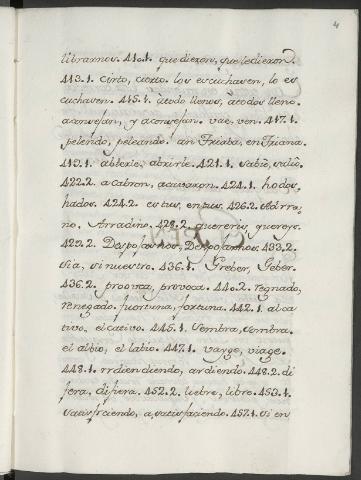 4
librarnos. 410.1. que dieron, que le dieron.
413.1. Cirto, cierto. los escuchaven, lo es
cuchaven. 415.1. atodo llenos, atodos lleno.
aconsejan, y aconsejan. vae. ven. 417.1.
pelendo, peleando. an Friaba, en Friana.
419.1. abterle, abrirle. 421.1. Sabie, sabio.
422.2. acabron, acavaron. 424.1. hodos,
hados. 424.2. es tus, en sus. 426.2. Adrra
no, Arradino. 428.2. quereris, quereys.
429.2. Desposarnos, Desposarnos. 433.2.
Sia, si nuestro. 436.1. Greber, Geber.
436.2. prooica, provoca. 440.2. regnado,
renegado. fuortuna, fortuna. 442.1. al ca
tivo, el cativo. 445.1. Sembra, sombra.
el albio, el labio. 447.1. varge, viage.
448.1. rrdien diendo, ardiendo. 448.2. di
fera, difiera. 452.2. luebre, libre. 453.1.
satisfrciendo, a satisfaciendo. 457.1. Si en